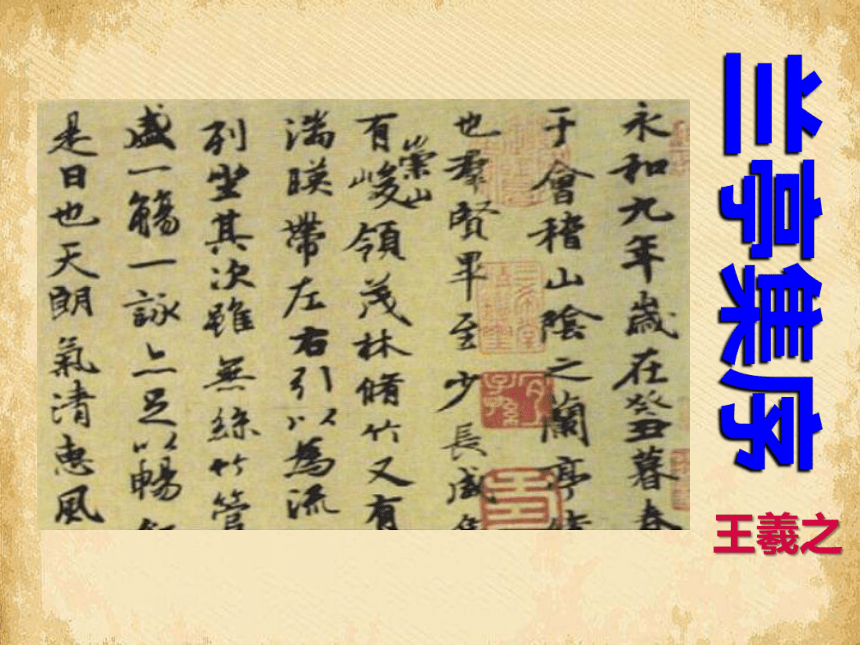 兰亭集序
王羲之
永和九年歲在癸丑暮春
于會稽山陰之蘭亭
也羣賢畢至少長咸
有崇山峻領茂林脩竹又有
湍暎帶左右引以為流
列坐其次雖無絲竹管
盛一觴一詠亦足以暢
是日也天朗氣清惠風